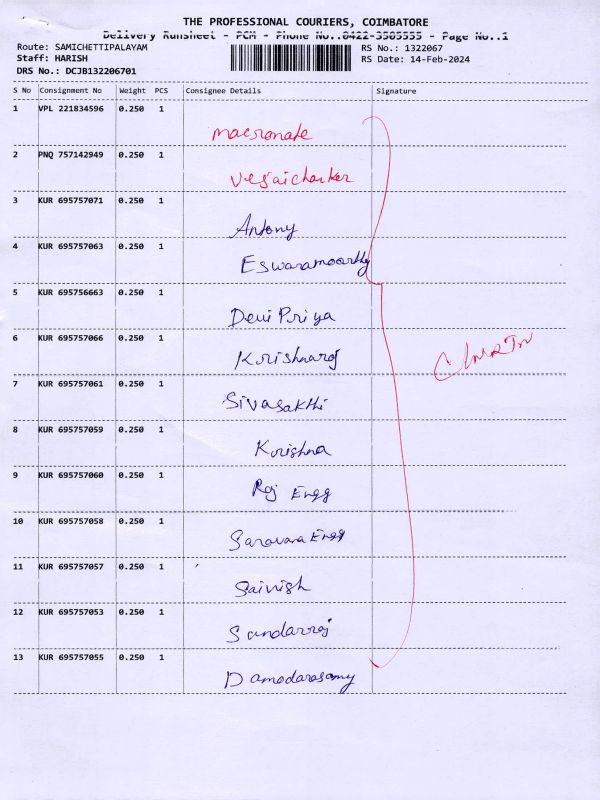 THE PROFESSIONAL COURIERS, COIMBATORE
Delivery Runsheet - PCM - Phone No.:0422-3505555 - Page No.:1
Route: SAMICHETTIPALAYAM
RS No.: 1322067
Staff: HARISH
RS Date: 14-Feb-2024
DRS No.: DCJB132206701
S No Consignment No Weight PCS Consignee Details Signature
1 VPL 221834596 0.250 1
macronate
2 PNQ 757142949 0.250 1
3 KUR 695757071 0.250 1
Antony
4 KUR 695757063 0.250 1
Eswaramoorthy
5 KUR 695756663 0.250 1
Devi Priya
6 KUR 695757066 0.250 1
Krishnaraj
7 KUR 695757061 0.250 1
Sivasakthi
8 KUR 695757059 0.250 1
Krishna
9 KUR 695757060 0.250 1
Raj Engg
10 KUR 695757058 0.250 1
Saravana Engg
11 KUR 695757057 0.250 1
Sainish
12 KUR 695757053 0.250 1
Sundarraj
13 KUR 695757055 0.250 1
Damodarasamy